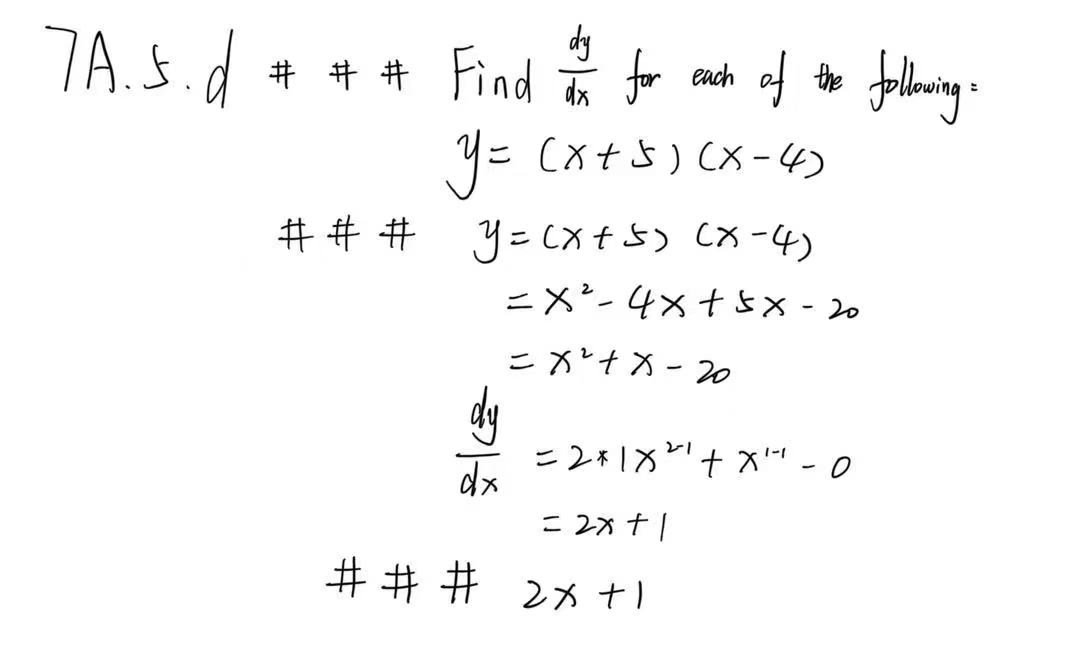 7A.5.d # # # Find dy/dx for each of the following:
y = (x+5)(x-4)
# # # y = (x+5)(x-4)
= x² - 4x + 5x - 20
= x² + x - 20
dy/dx = 2*1x²⁻¹ + x¹⁻¹ - 0
= 2x + 1
# # # 2x + 1